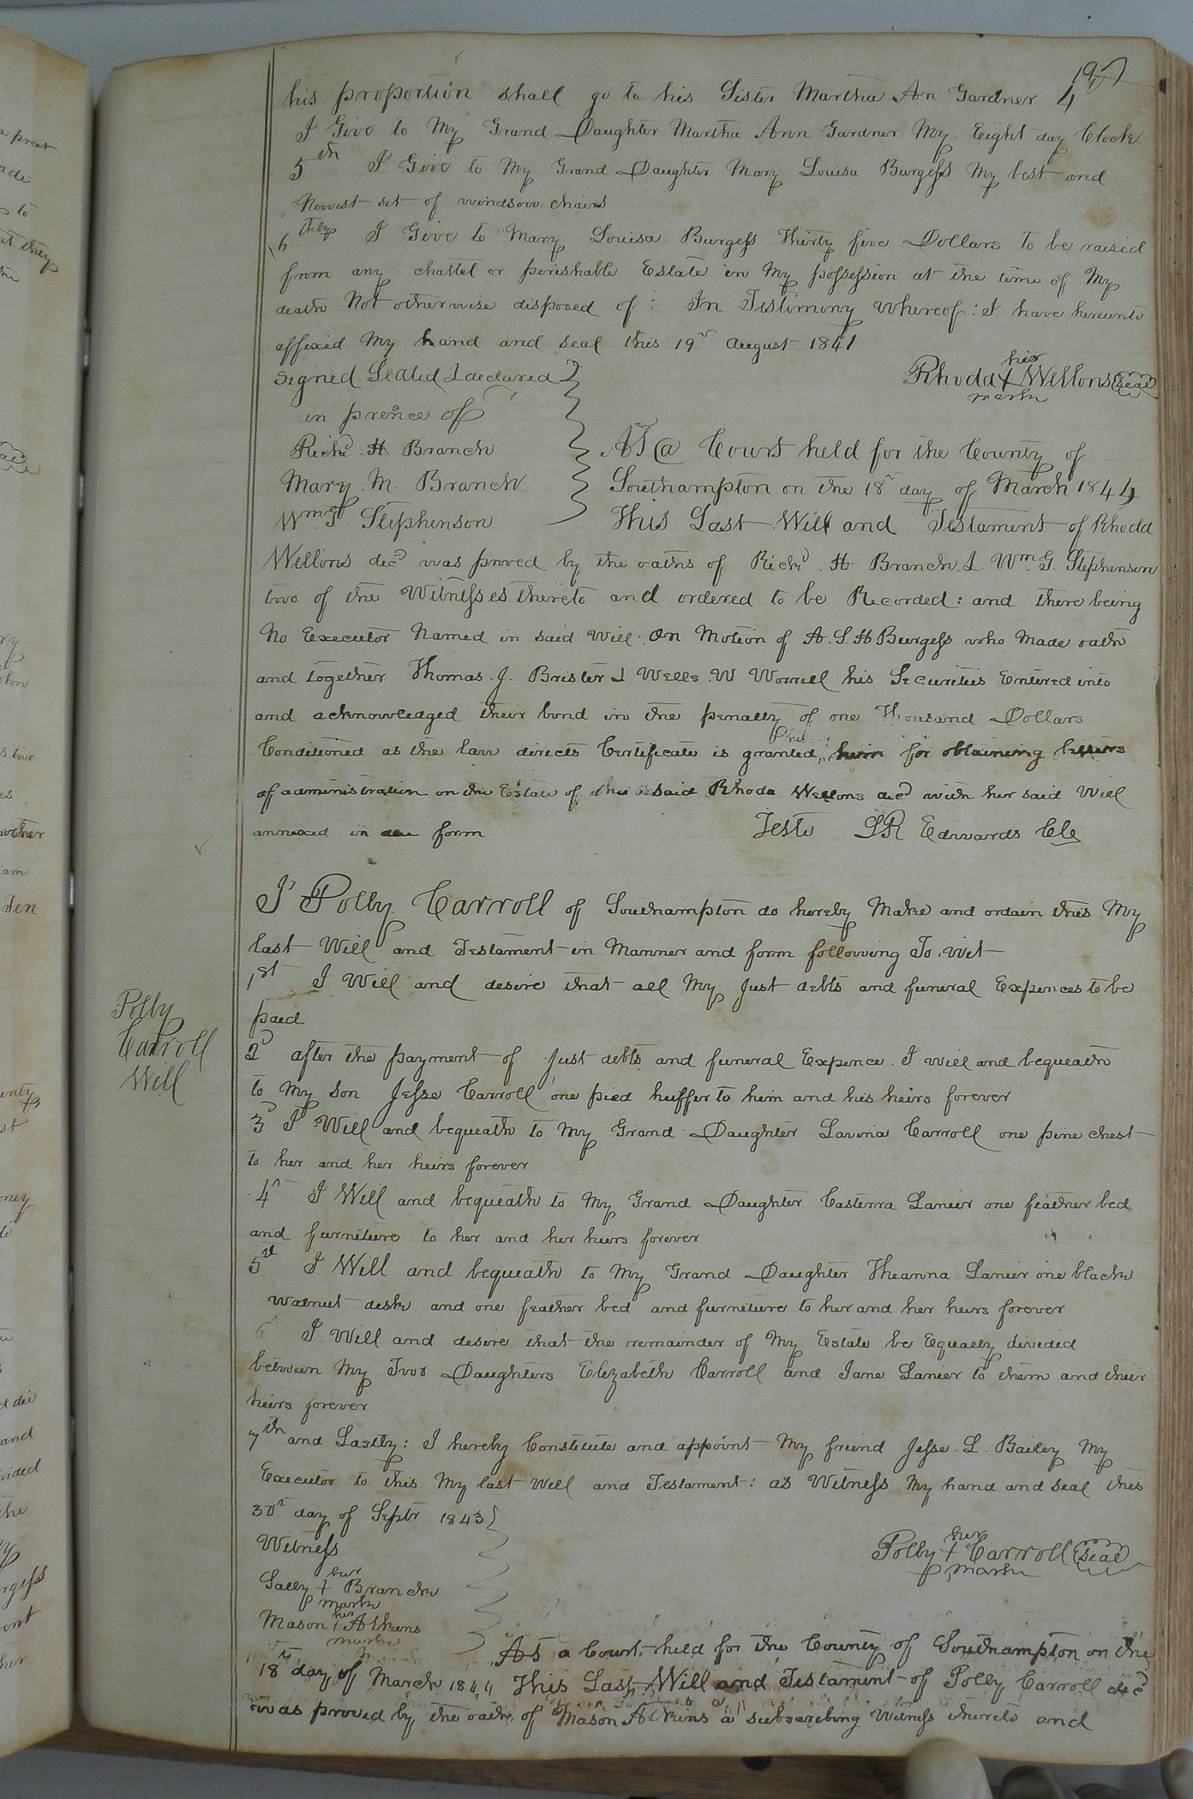 197
his proportion shall go to his Sister Martha An Gardner 4
I Give to My Grand Daughter Martha Ann Gardner My Eight day Clock
5th I Give to My Grand Daughter Mary Louisa Burgess My best and
Newest set of windsor chairs
6thly I Give to Mary Louisa Burgess Thirty five Dollars to be raised
from any chattel or perishable Estate in My possession at the time of My
death Not otherwise disposed of: In Testimony whereof: I have hereunto
affixed My hand and seal this 19th August 1841
Signed Sealed & declared
in prence of
Rhoda her + mark Wellons Seal
Richd. H. Branch
Mary. M. Branch
Wm G Stephenson
AT @ Court held for the County of
Southampton on the 18th day of March 1844
This Last Will and Testament of Rhoda
Wellons decd was proved by the oaths of Richd. H Branch & Wm. G. Stephenson
two of the Witnesses thereto and ordered to be Recorded: and there being
No Executor Named in said Will. On Motion of A. S. H Burgess who Made oath
and together Thomas. J. Brister & Wells. W Worrell his Securities Entered into
and acknowledged their bond in the penalty of one Thousand Dollars
Conditioned as the law directs Certificate is granted him for obtaining letters
of administration on the Estate of the said Rhoda Wellons decd with her said Will
annexed in due form
Teste L R Edwards Clk
I Polly Carroll of Southampton do hereby Make and ordain this My
last Will and Testament in Manner and form following To. Wit
1st I Will and desire that all My Just debts and funeral Expences to be
paid
Polly
Carroll
Will
2d after the payment of Just debts and funeral Expence. I will and bequeath
to My son Jesse Carroll one pied heiffer to him and his heirs forever
3d I Will and bequeath to My Grand Daughter Lavina Carroll one pine chest
to her and her heirs forever
4th I Will and bequeath to My Grand Daughter Casterra Lanier one feather bed
and furniture to her and her heirs forever
5th I Will and bequeath to My Grand Daughter Theanna Lanier one black
walnut desk and one feather bed and furniture to her and her heirs forever
6th I Will and desire that the remainder of My Estate be Equally divided
between My Two Daughters Elizabeth Carroll and Jane Lanier to them and their
heirs forever
7th and Lastly: I hereby Constitute and appoint My friend Jesse. L. Bailey My
Executor to this My last Will and Testament: as Witness My hand and seal this
30th day of Septr 1843
Witness
Polly her + mark Carroll Seal
Sally her + mark Branch
Mason his + mark Atkins
At a Court held for the County of Southampton on the
18th day of March 1844 This Last Will and Testament of Polly Carroll decd
was proved by the oath of Mason Atkins a subscribing Witness thereto and